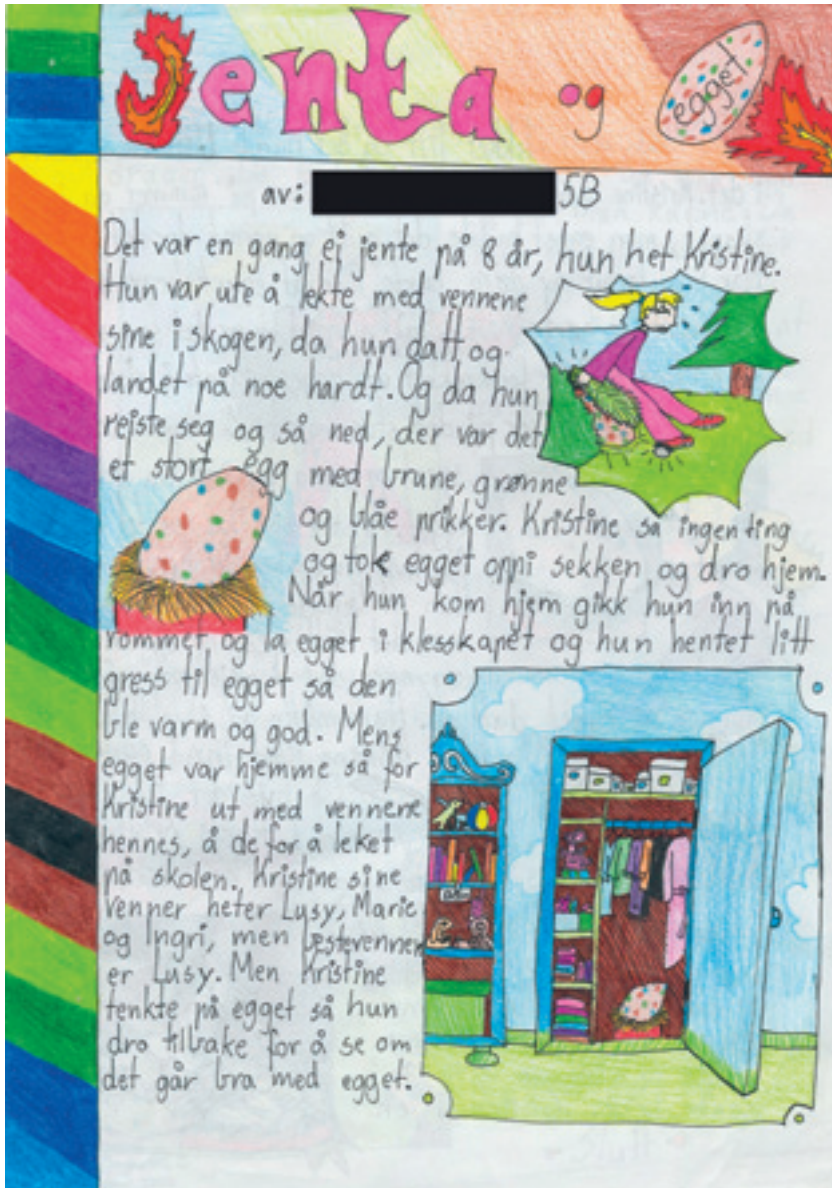 Jenta og egget
av: 5B
Det var en gang ei jente på 8 år, hun het Kristine.
Hun var ute å lekte med vennene
sine i skogen, da hun datt og
landet på noe hardt. Og da hun
rejste seg og så ned, der var det
et stort egg med brune, grønne
og blåe prikker. Kristine sa ingenting
og tok egget oppi sekken og dro hjem.
Når hun kom hjem gikk hun inn på
rommet og la egget i klesskapet og hun hentet litt
gress til egget så den
ble varm og god. Mens
egget var hjemme så for
Kristine ut med vennene
hennes, å de for å leket
på skolen. Kristine sine
venner heter Lusy, Marie
og Ingri, men bestevennen
er Lusy. Men Kristine
tenkte på egget så hun
dro tilbake for å se om
det går bra med egget.